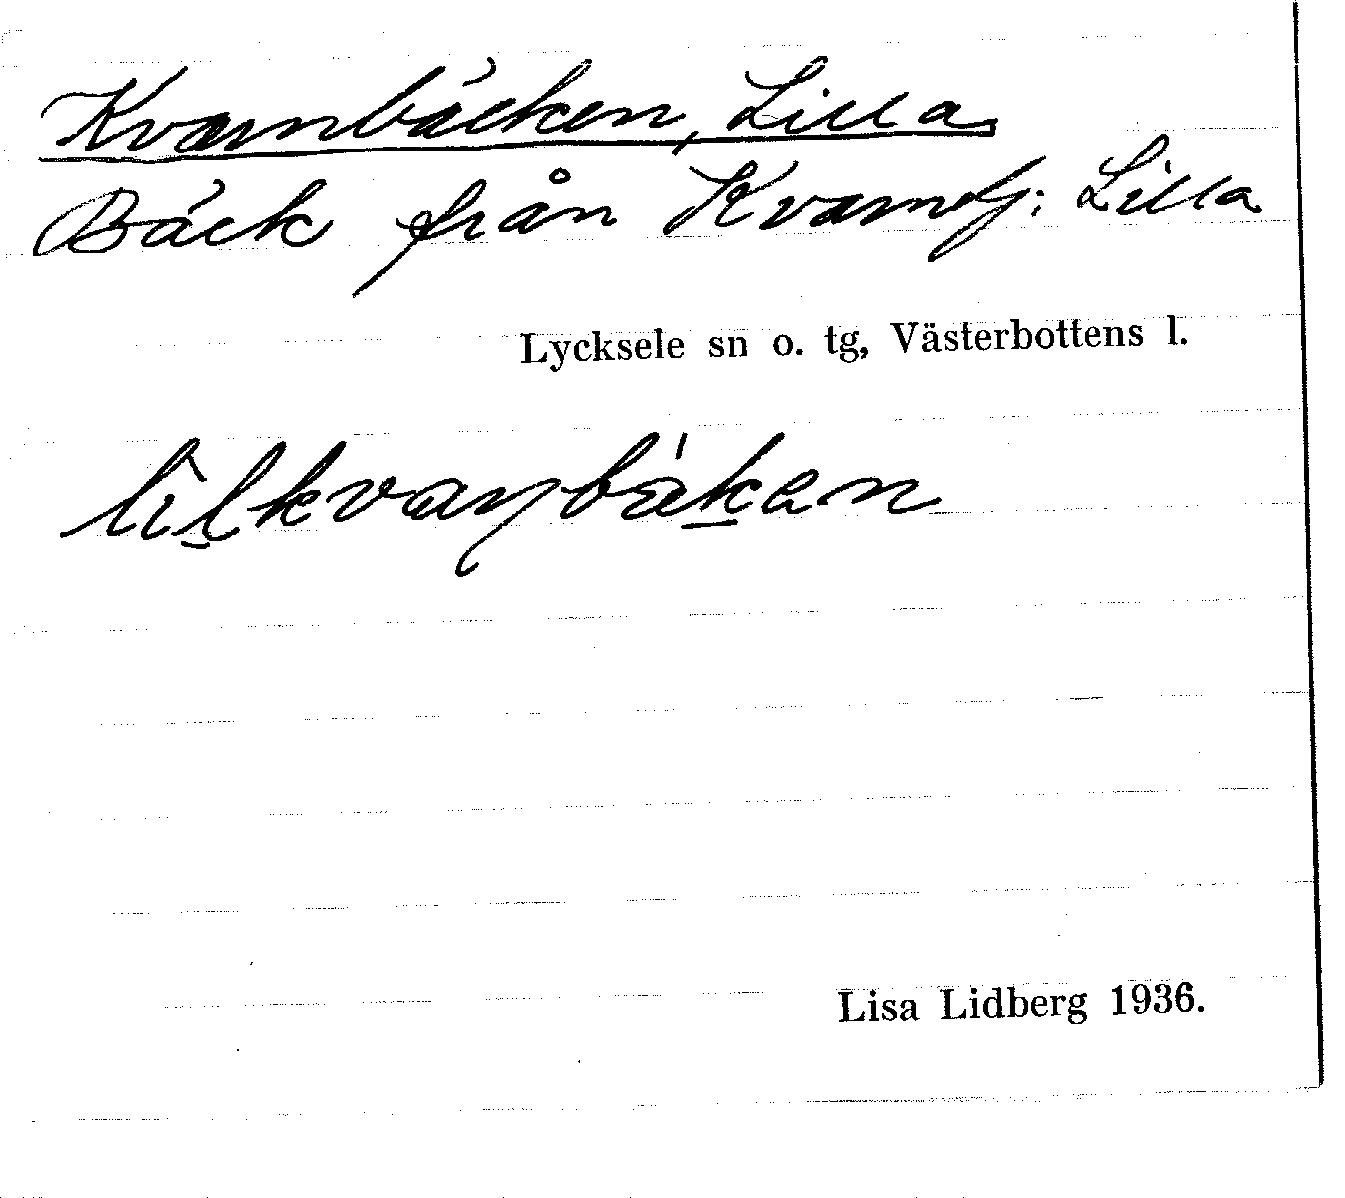 Kvarnbäcken, Lilla
Bäck från Kvarnsj: Lilla
Lycksele sn o. tg, Västerbottens l.
Lisa Lidberg 1936.